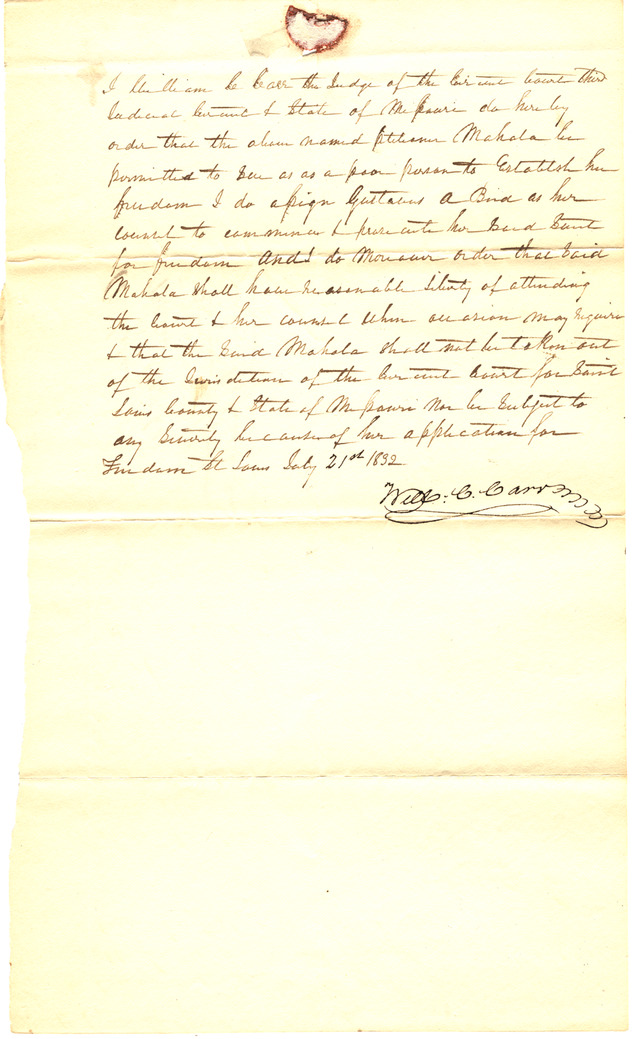 I William C Carr the Judge of the Circuit Court third
Judicial Circuit & State of Missouri do hereby
order that the above named petitioner Mahala be
permitted to sue as as a poor person to Establish her
freedom I do assign Gustavus A Bird as her
counsel to commence & prosecute her said suit
for freedom And I do Moreover order that said
Mahala shall have reasonable liberty of attending
the Court & her counsel when occasion may require
& that the said Mahala shall not be taken out
of the Jurisdiction of the Circuit Court for Saint
Louis County & State of Missouri Nor be subject to
any Severity because of her application for
Freedom St Louis July 21st 1832
Will. C. Carr